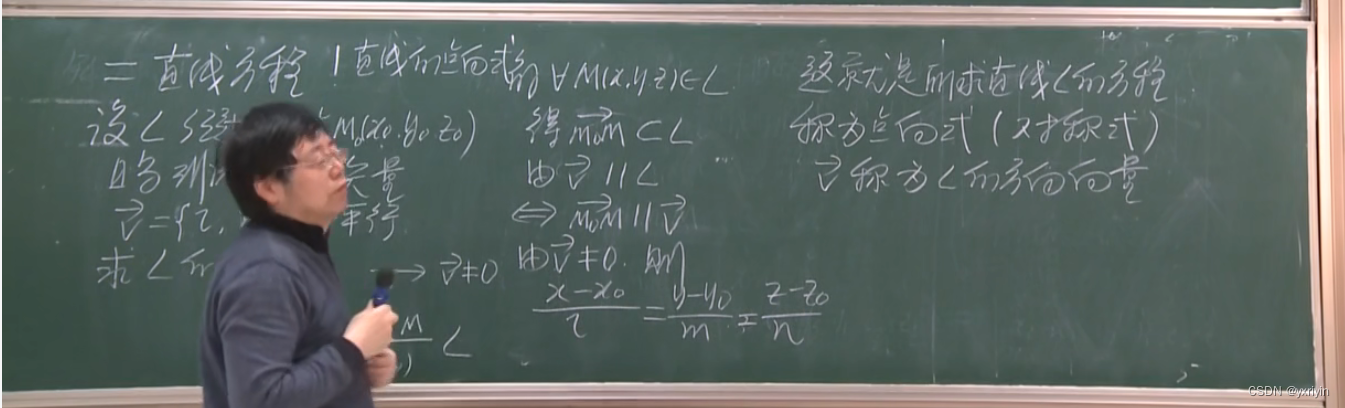 二 直线方程 1 直线的点向式
设 L 经 M₀(x₀, y₀, z₀)
且与 量
v⃗ = {l, 平行.
求 L 的
→ v⃗≠0
M
L
∀ M(x,y,z)∈L
得 M₀M⃗ ⊂ L
由 v⃗ // L
⇔ M₀M⃗ // v⃗
由 v⃗≠0. 则
(x-x₀)/l = (y-y₀)/m = (z-z₀)/n
这就是所求直线L的方程.
称为点向式 (对称式)
v⃗ 称为L的方向向量
CSDN @yxriyin